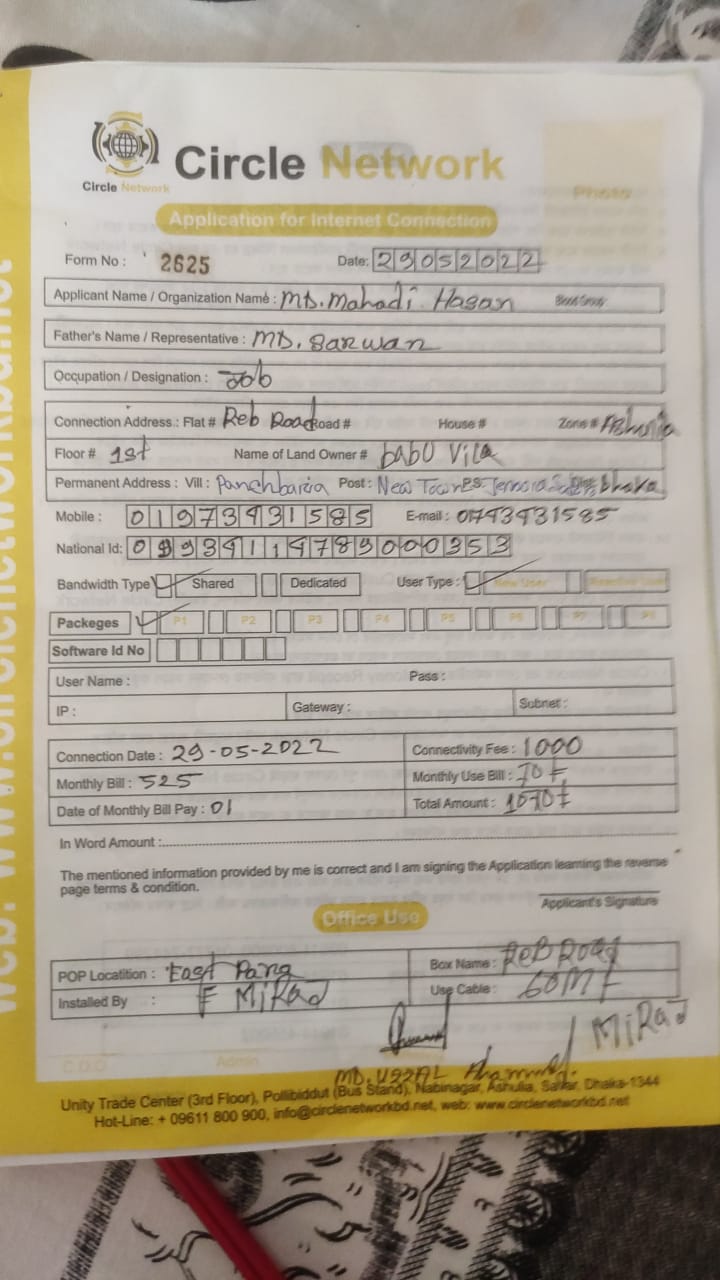 Circle Network
Circle Network
Photo
Application for Internet Connection
Form No : 2625 Date: 29052022
Applicant Name / Organization Name : MD. Mahadi Hasan Blood Group
Father's Name / Representative : MD. Sarwan
Occupation / Designation : Job
Connection Address.: Flat # Reb Road Road # House # Zone # Ashulia
Floor # 1st Name of Land Owner # babu Vila
Permanent Address : Vill : Panchbaria Post : New Town P.S:
Mobile : 01973431585 E-mail : 01743431585
National Id:
Bandwidth Type Shared Dedicated User Type : New User
Packeges P1 P2 P3 P4 P5 P6 P7 P8
Software Id No
User Name : Pass :
IP : Gateway : Subnet :
Connection Date : 29-05-2022 Connectivity Fee : 1000
Monthly Bill : 525 Monthly Use Bill : 70
Date of Monthly Bill Pay : 01 Total Amount : 1070
In Word Amount :
The mentioned information provided by me is correct and I am signing the Application learning the reverse
page terms & condition.
Applicant's Signature
Office Use
POP Locatition : East Pang Box Name : ReB Road
Installed By : MiRaJ Use Cable : 60M
MiRaJ
C.O.O Admin
MD. Ahammed
Unity Trade Center (3rd Floor), Pollibiddut (Bus Stand), Nabinagar, Ashulia, Savar, Dhaka-1344
Hot-Line: + 09611 800 900, info@circlenetworkbd.net, web: www.circlenetworkbd.net
web: www.circlenetworkbd.net